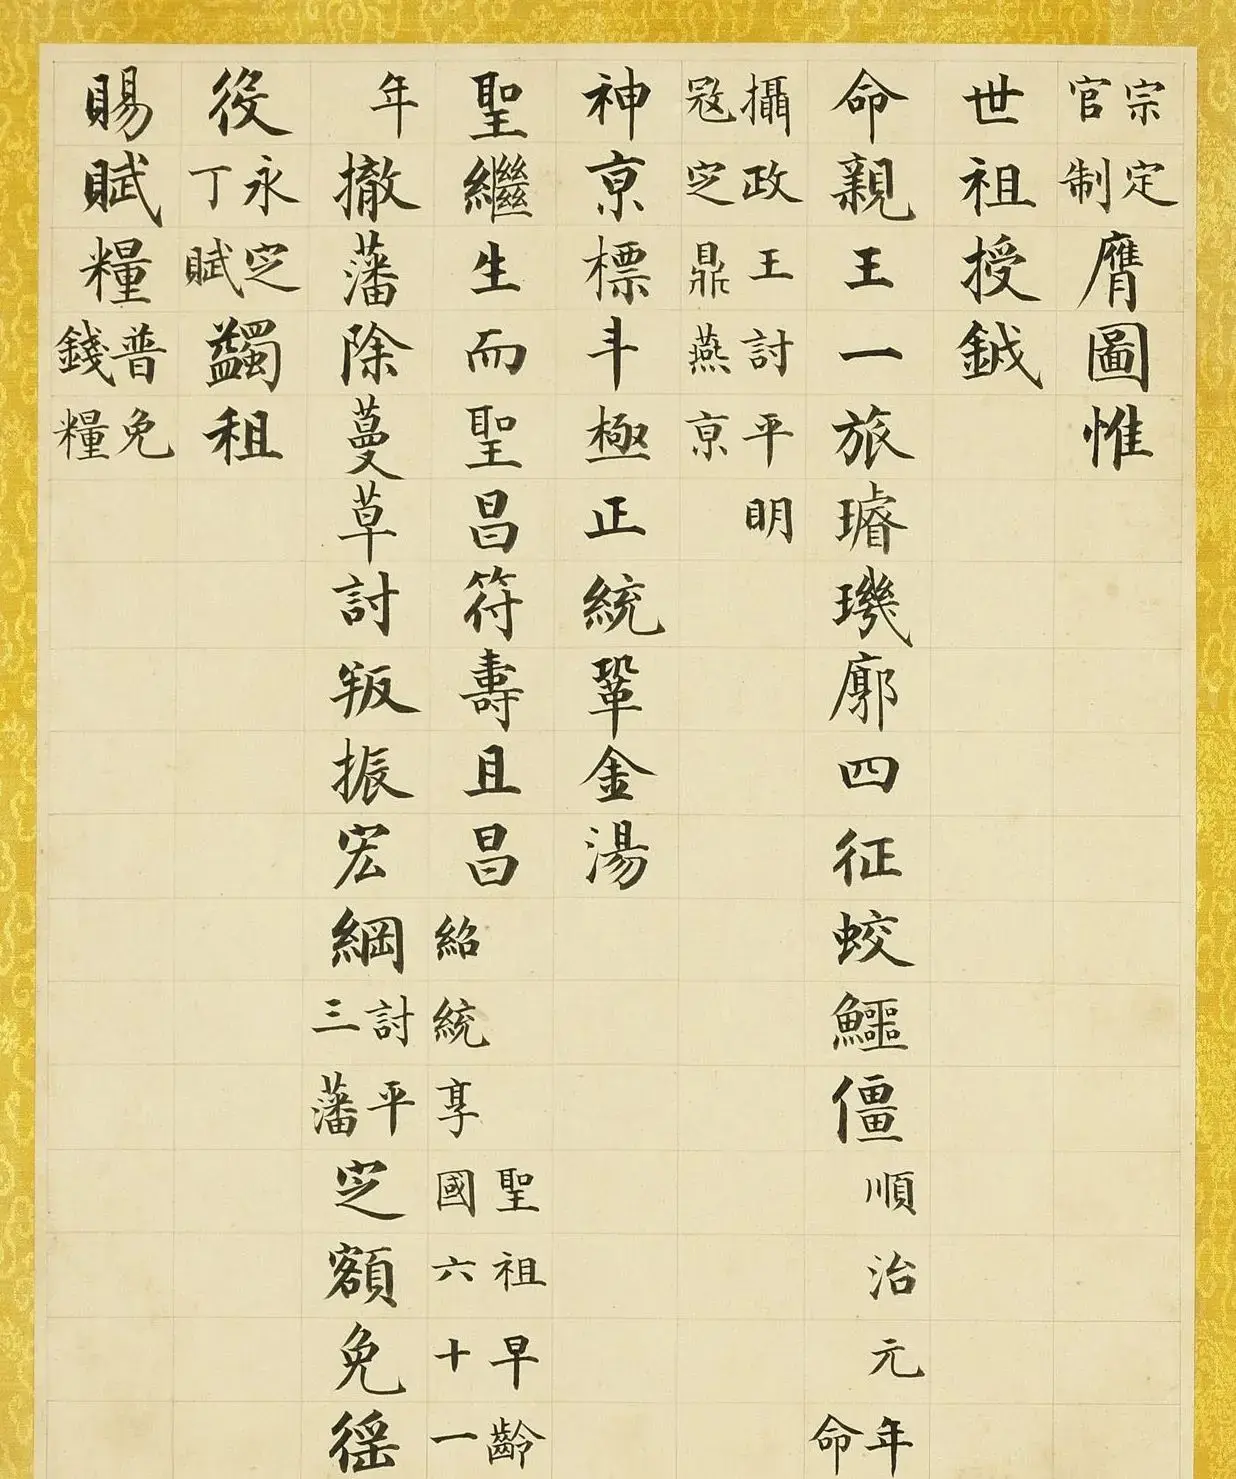 宗定官制膺圖惟
世祖授鉞
命親王一旅璿璣廓四征蛟鱷僵順治元年命
攝政王討平明寇㝎鼎燕亰
神亰標斗極正統鞏金湯
聖繼生而聖昌符壽且昌聖祖早齡紹統享國六十一
年撤藩除蔓草討叛振宏綱討平三藩㝎額免徭
役永㝎丁賦蠲租
賜賦糧普免錢糧